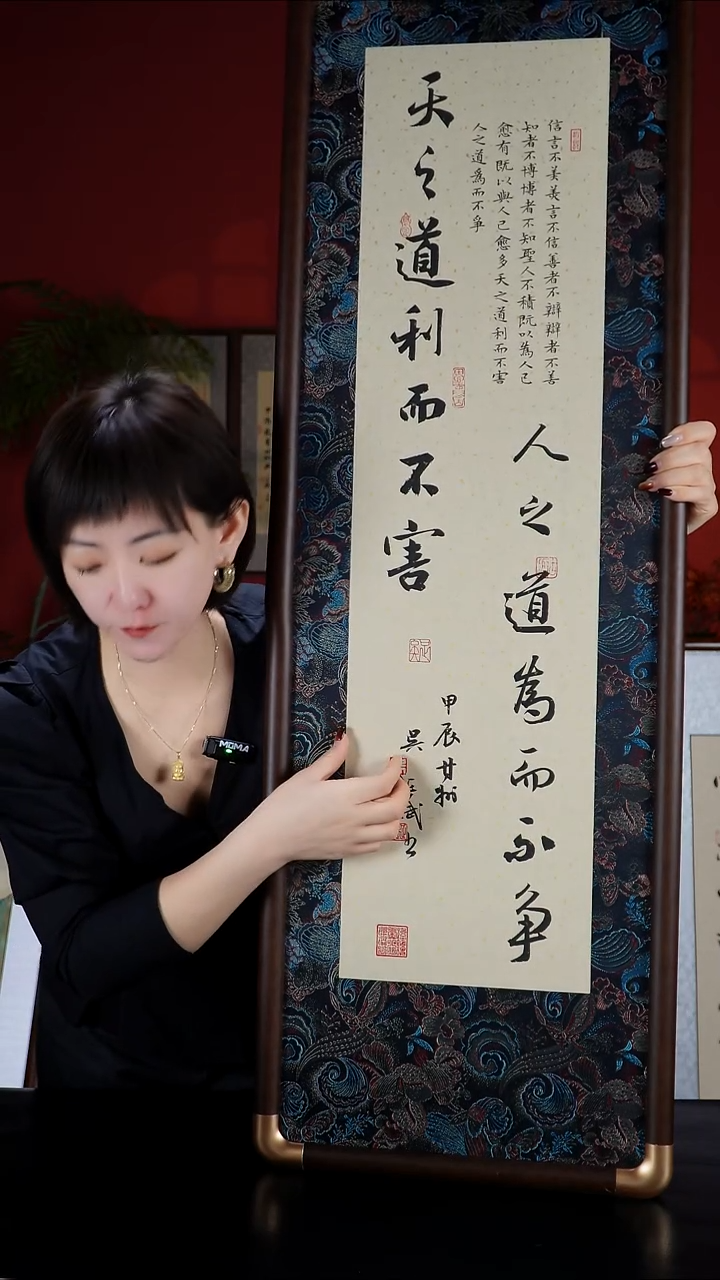 信言不美美言不信善者不辯辯者不善
知者不博博者不知聖人不積既以為人己
愈有既以與人己愈多天之道利而不害
人之道為而不爭
天之道利而不害
人之道為而不争
甲辰甘州
吴武书
MOMA